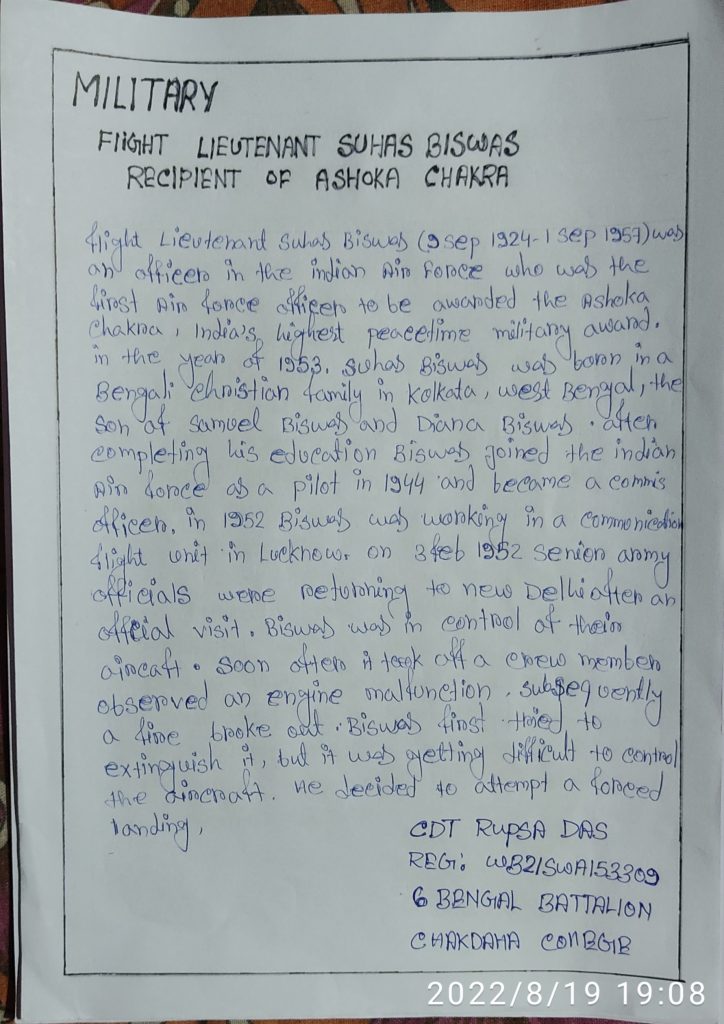 MILITARY
FlIGHT LIEUTENANT SUHAS BISWAS
RECIPIENT OF ASHOKA CHAKRA
flight Lieutenant Suhas Biswas (9 sep 1924-1 sep 1957) was
an officer in the indian Air Force who was the
first Air force officer to be awarded the Ashoka
Chakra, India's highest peacetime military award.
in the year of 1953. Suhas Biswas was born in a
Bengali christian family in Kolkata, west Bengal, the
son of Samuel Biswas and Diana Biswas. after
completing his education Biswas joined the indian
Air force as a pilot in 1944 and became a commis
officer. in 1952 Biswas was working in a commonication
flight unit in Lucknow. on 3 feb 1952 senior army
officials were returning to new Delhi after an
official visit. Biswas was in control of their
aircaft. soon after it took off a crew member
observed an engine malfunction. subsequently
a fire broke out. Biswas first tried to
extinguish it, but it was getting difficult to control
the aircraft. He decided to attempt a forced
landing,
CDT RUPSA DAS
REG: WB21SWA153309
6 BENGAL BATTALION
CHAKDAHA
2022/8/19 19:08